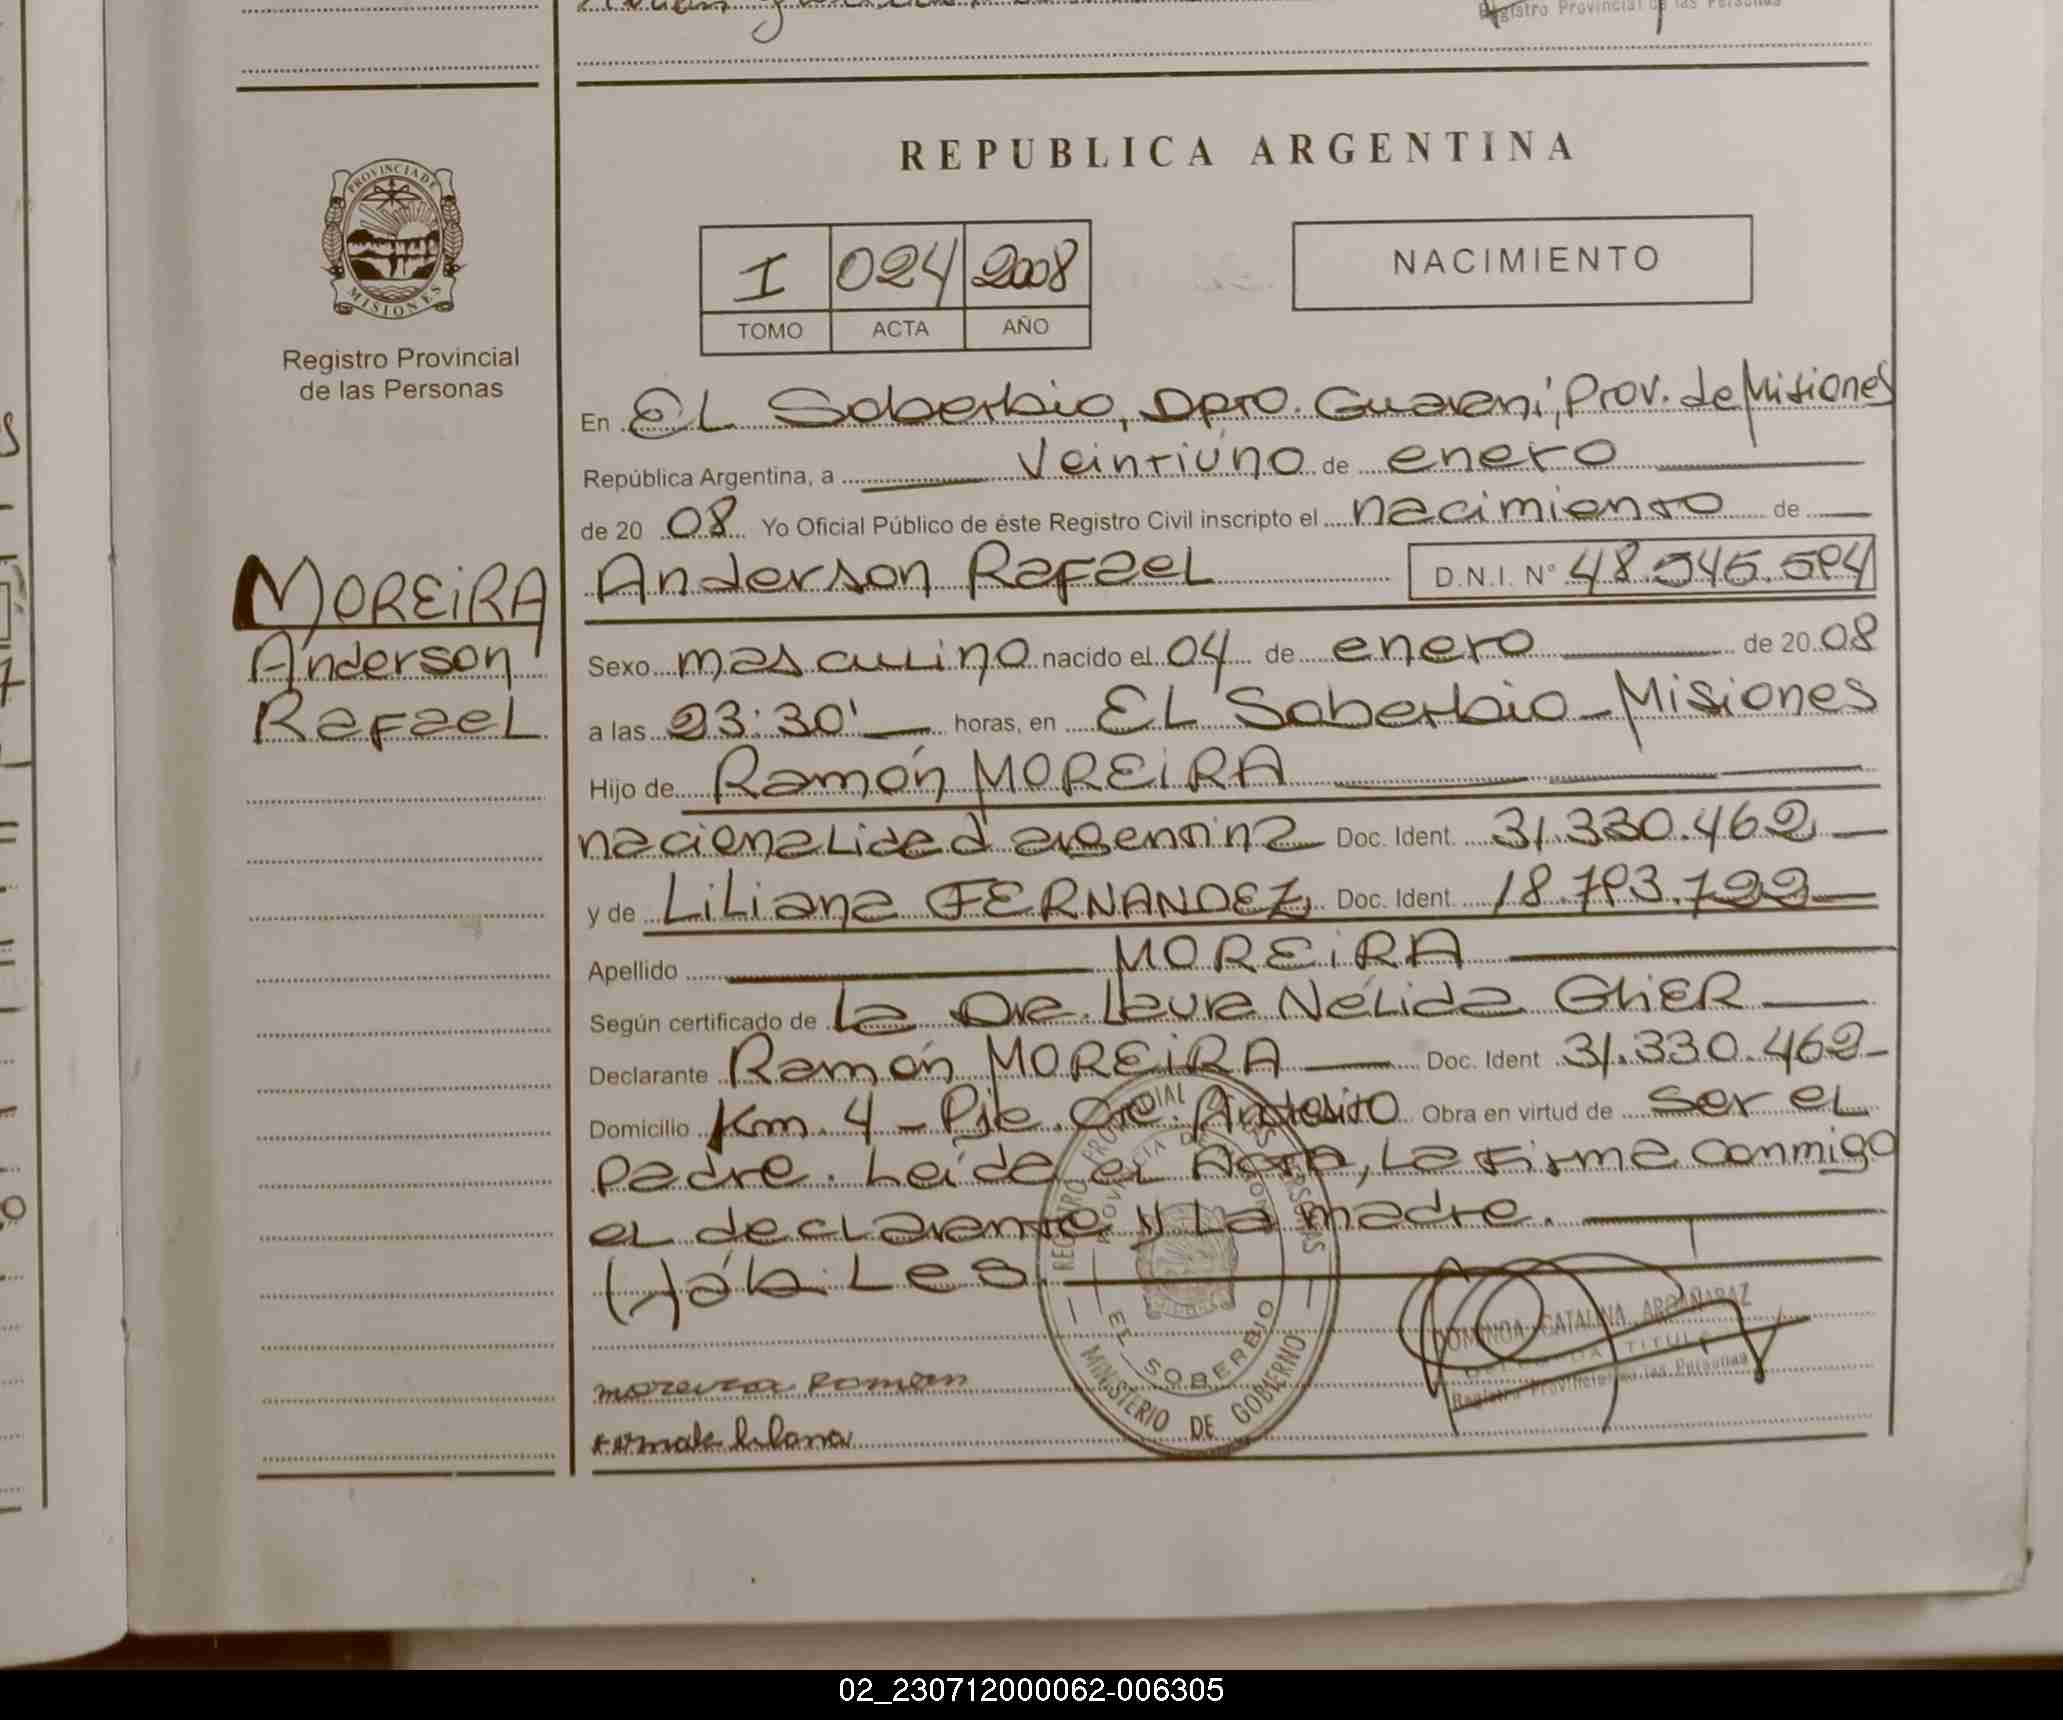 REPUBLICA ARGENTINA
PROVINCIA DE
MISIONES
Registro Provincial
de las Personas
I 024 2008
TOMO ACTA AÑO
NACIMIENTO
MOREIRA
Anderson
Rafael
En EL Soberbio, Dpto. Guaraní, Prov. de Misiones
República Argentina, a Veintiuno de enero
de 20 08 Yo Oficial Público de éste Registro Civil inscripto el nacimiento de
Anderson Rafael D.N.I. Nº
Sexo masculino nacido el 04 de enero de 20 08
a las 23:30' horas, en EL Soberbio - Misiones
Hijo de Ramón MOREIRA
nacionalidad argentina Doc. Ident. 31.330.462
y de Liliana FERNANDEZ Doc. Ident.
Apellido MOREIRA
Según certificado de la Dra. Laura Nélida GHIER
Declarante Ramón MOREIRA Doc. Ident 31.330.462
Domicilio Km. 4 - Pje. Cte. Andresito Obra en virtud de ser el
padre. Leída el Acta, la firma conmigo
el declarante y la madre.
(H) áb. Les
REGISTRO PROVINCIAL DE LAS PERSONAS
EL SOBERBIO
MINISTERIO DE GOBIERNO
DOMINGA CATALINA ARGAÑARAZ
DELEGADA TITULAR
Registro Provincial de las Personas
moreira Ramon
02_230712000062-006305